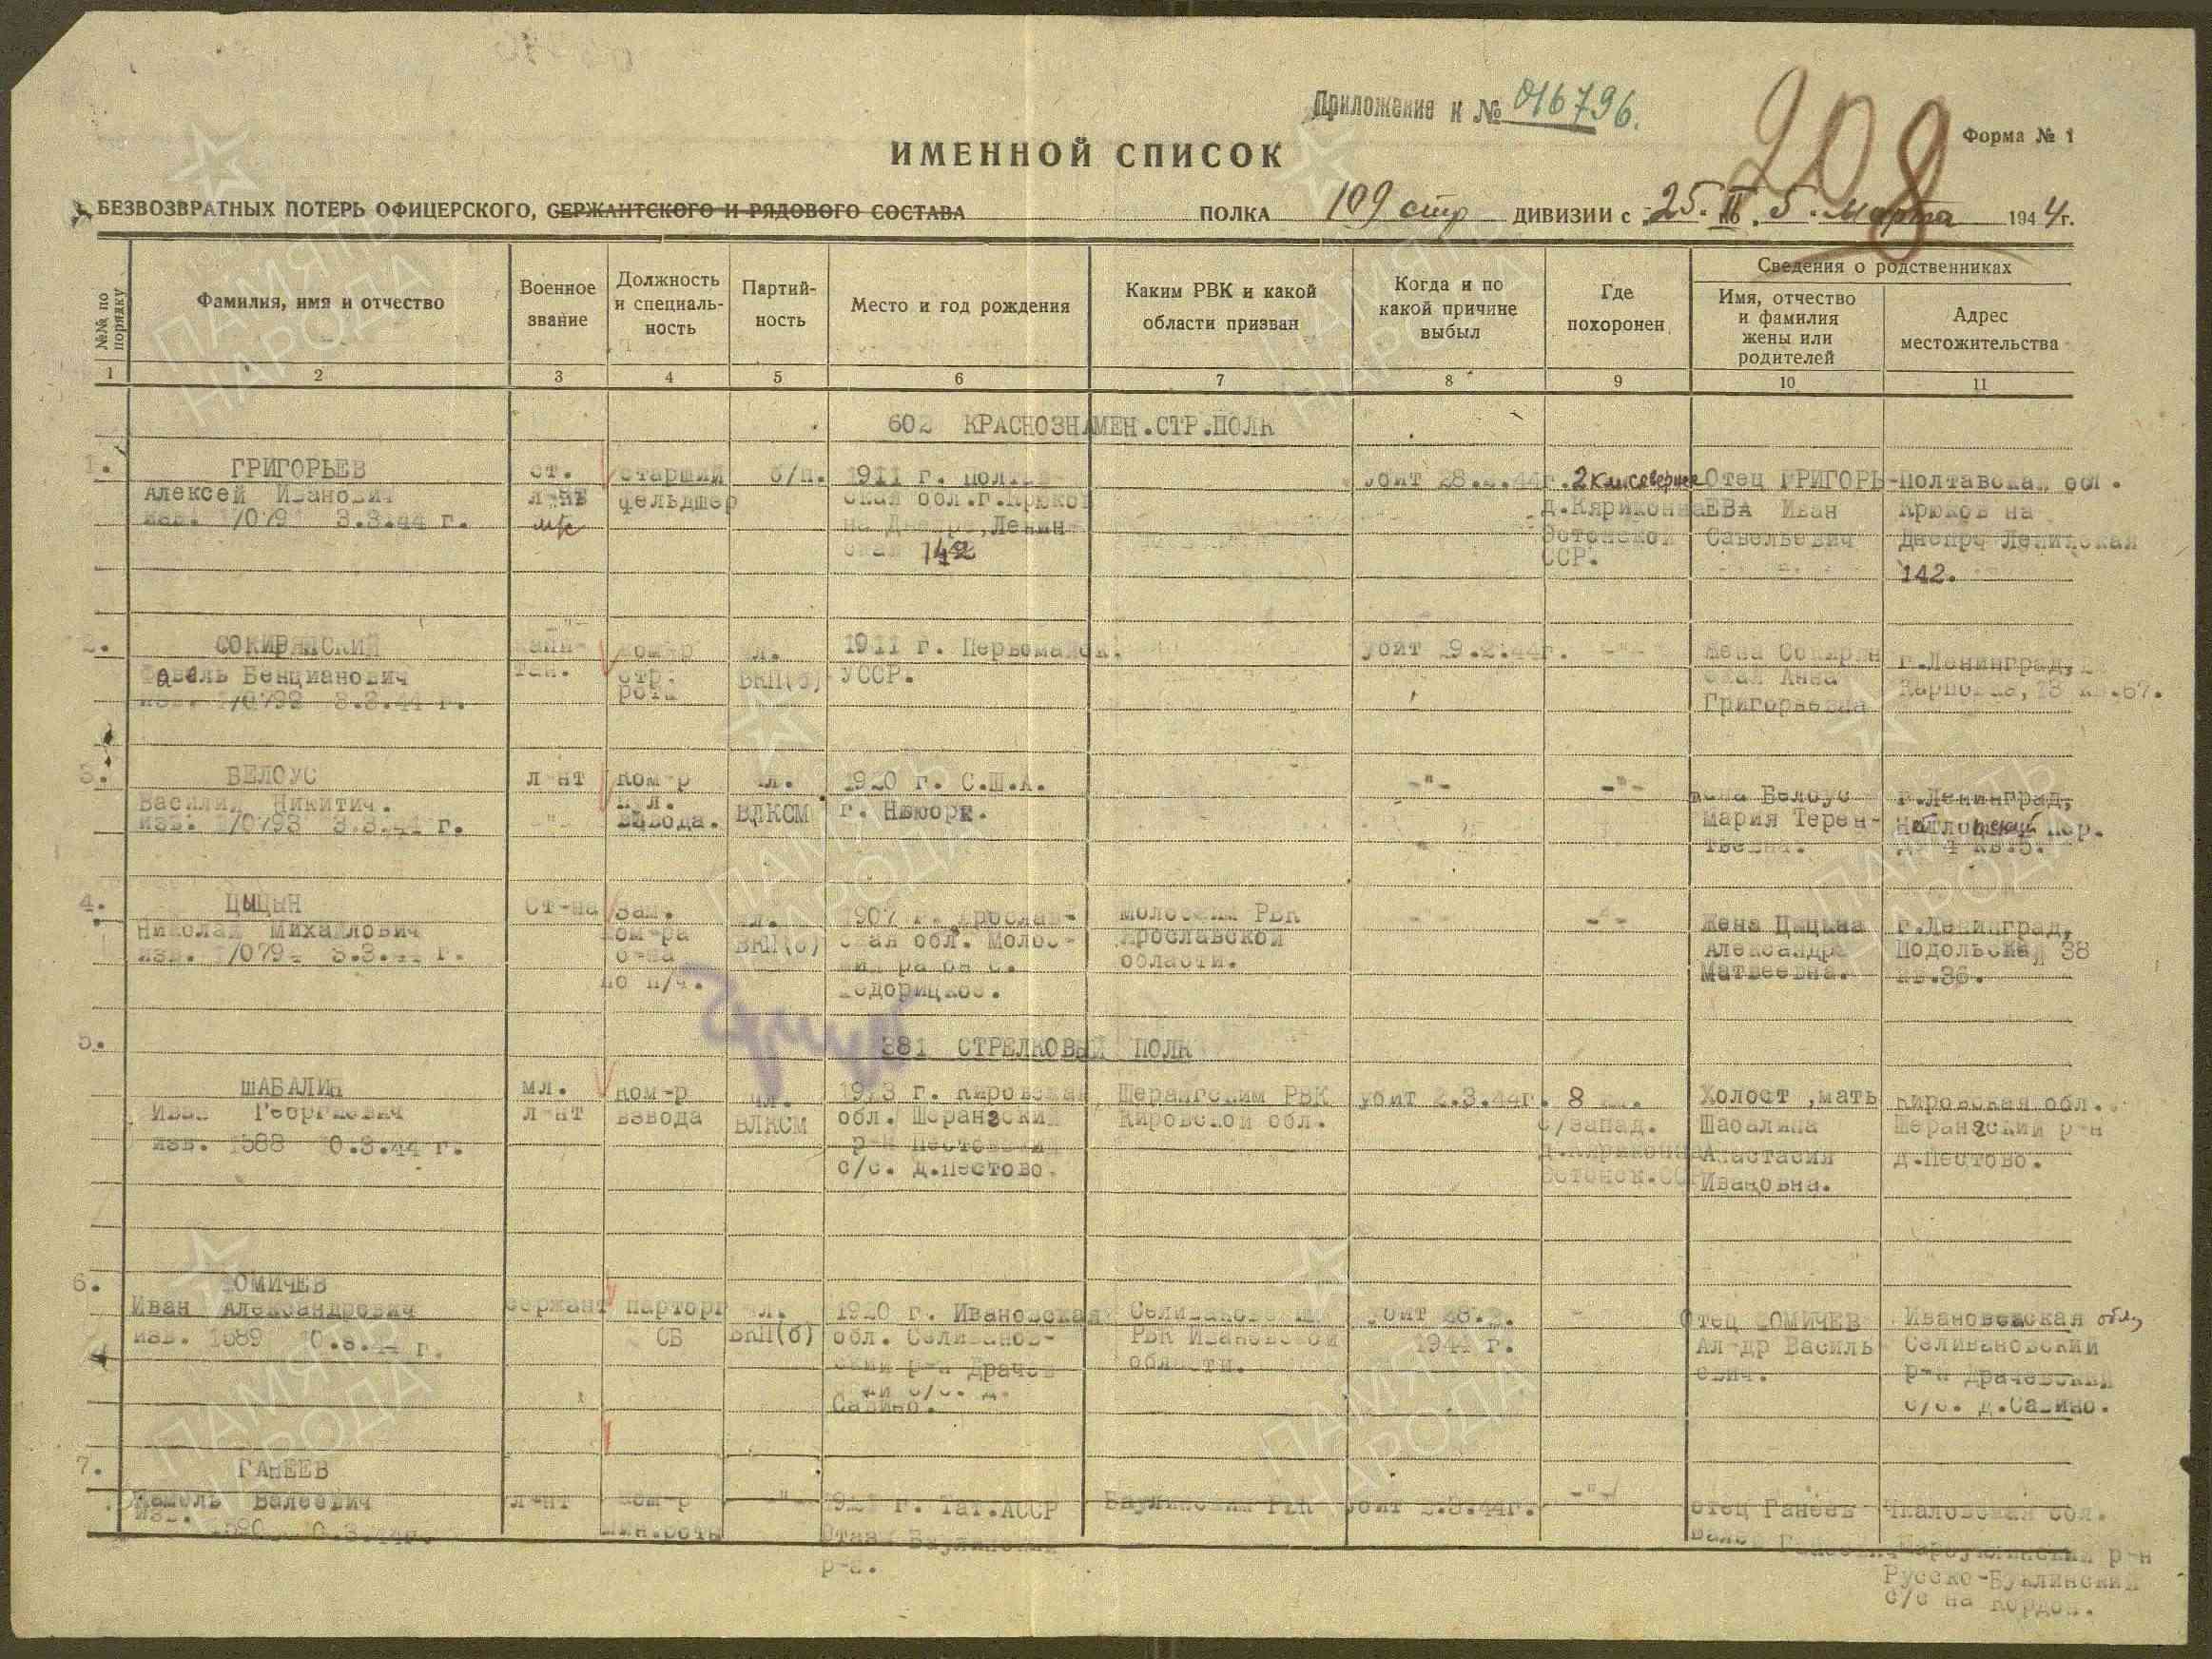 Приложение к № 016796.
208
Форма № 1
ИМЕННОЙ СПИСОК
БЕЗВОЗВРАТНЫХ ПОТЕРЬ ОФИЦЕРСКОГО, СЕРЖАНТСКОГО И РЯДОВОГО СОСТАВА ПОЛКА 109 стр ДИВИЗИИ с 25. II. по 5. марта 1944 г.
№№ по порядку
Фамилия, имя и отчество
Военное звание
Должность и специаль-ность
Партий-ность
Место и год рождения
Каким РВК и какой области призван
Когда и по какой причине выбыл
Где похоронен
Сведения о родственниках
Имя, отчество и фамилия жены или родителей
Адрес местожительства
1 2 3 4 5 6 7 8 9 10 11
602 КРАСНОЗНАМЕН.СТР.ПОЛК
1.
ГРИГОРЬЕВ
Алексей Иванович
3.3.44 г.
ст.
л-нт
м/с
старший
фельдшер
б/п.
1911 г.
ская обл.г.Крюков
на Днепре, Ленин
ская 142
убит 28.2.44г.
2 км севернее
д.Кяриконна
Эстонской
ССР.
Отец ГРИГОРЬ-
ЕВА Иван
Савельевич
Полтавская обл.
Крюков на
Днепре Ленинская
142.
2.
СОКИРЯНСКИЙ
Бенцианович
3.3.44 г.
капи-
тан.
ком-р
стр.
роты
чл.
ВКП(б)
1911 г. Первомайск.
УССР.
убит 29.2.44г.
-"-
Жена Сокирян
ская Анна
Григорьевна
г.Ленинград,
кв.67.
3.
БЕЛОУС
Василий Никитич.
изв. 3.3.44 г.
л-нт
ком-р
пул.
взвода.
чл.
ВЛКСМ
1920 г. С.Ш.А.
г. Нью
-"-
-"-
жена Белоус
Мария Терен-
тьевна.
г.Ленинград,
пер.
4 кв.5.
4.
ЦЫЦЫН
Николай Михайлович
изв. 3.3.44 г.
Зам.
ком-ра
б-на
по п/ч.
чл.
ВКП(б)
1907 г. Ярослав-
ская обл. Молог-
ский район с.
Молотским РВК
Ярославской
области.
-"-
-"-
Жена Цыцына
Александра
Матвеевна.
г.Ленинград,
Подольская 38
кв.36.
5.
381 СТРЕЛКОВЫЙ ПОЛК
ШАБАЛИН
Иван Георгиевич
изв. 1588 10.3.44 г.
мл.
л-нт
ком-р
взвода
чл.
ВЛКСМ
1923 г. Кировская
обл. Шерангский
р-н Пестовский
с/с. д.Пестово.
Шерангским РВК
Кировской обл.
убит 2.3.44г.
8 км.
с/запад.
д.Кяриконна
Эстонск.ССР
Холост, мать
Шабалина
Анастасия
Ивановна.
Кировская обл.
Шерангский р-н
д.Пестово.
6.
ФОМИЧЕВ
Иван Александрович
изв. 1589 10.3.44 г.
сержант
парторг
СБ
чл.
ВКП(б)
1920 г. Ивановская
обл. Селиванов-
ский р-н Драчев
ский с/с. д.
Савино.
Селивановским
РВК Ивановской
области.
убит 28.2.
1944 г.
Отец ФОМИЧЕВ
Ал-др Василь
евич.
Ивановская обл,
Селивановский
р-н Драчевский
с/с. д.Савино.
7.
ГАНЕЕВ
Валеевич
изв. 10.3.44г.
л-нт
ком-р
мин.роты
-"-
г. Тат.АССР
р-н.
Баулинским РВК
убит 2.3.44г.
-"-
отец Ганеев
Чкаловская обл.
р-н
Русско-Буклинский
с/с на Кордон.
ПАМЯТЬ
НАРОДА